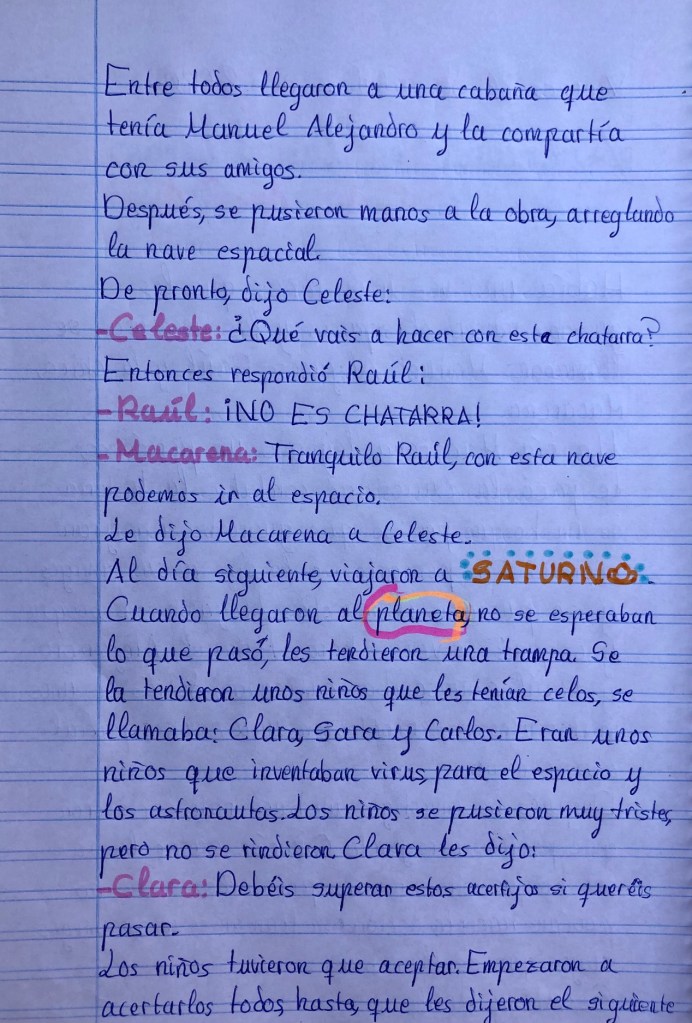 Entre todos llegaron a una cabaña que
tenía Manuel Alejandro y la compartía
con sus amigos.
Después, se pusieron manos a la obra, arreglando
la nave espacial.
De pronto, dijo Celeste:
-Celeste: ¿Qué vais a hacer con esta chatarra?
Entonces respondió Raúl:
-Raúl: ¡NO ES CHATARRA!
-Macarena: Tranquilo Raúl, con esta nave
podemos ir al espacio.
Le dijo Macarena a Celeste.
Al día siguiente, viajaron a SATURNO.
Cuando llegaron al planeta, no se esperaban
lo que pasó, les tendieron una trampa. Se
la tendieron unos niños que les tenían celos, se
llamaba: Clara, Sara y Carlos. Eran unos
niños que inventaban virus, para el espacio y
los astronautas. Los niños se pusieron muy tristes,
pero no se rindieron. Clara les dijo:
-Clara: Debéis superar estos acertijos si queréis
pasar.
Los niños tuvieron que aceptar. Empezaron a
acertarlos todos, hasta, que les dijeron el siguiente